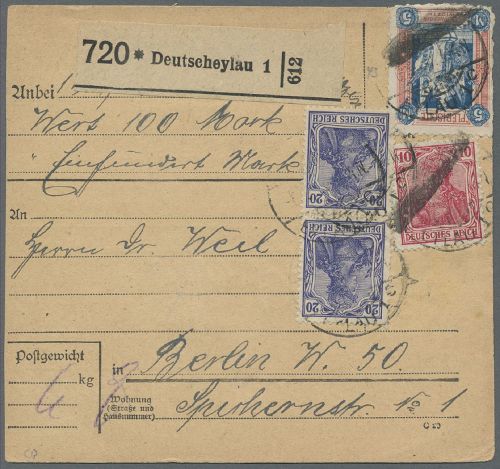 720* Deutscheylau 1 612
Anbei 1
Wert 100 Mark
"Einhundert Mark
An
Herrn Dr. Weil
in Berlin W. 50.
Wohnung
(Straße und
Hausnummer)
Spichernstr. No 1
C 23
Postgewicht
kg
5 M 5
PLÉBISCITE
20 20
DEUTSCHES REICH
20 20
DEUTSCHES REICH
10 10
DEUTSCHES REICH